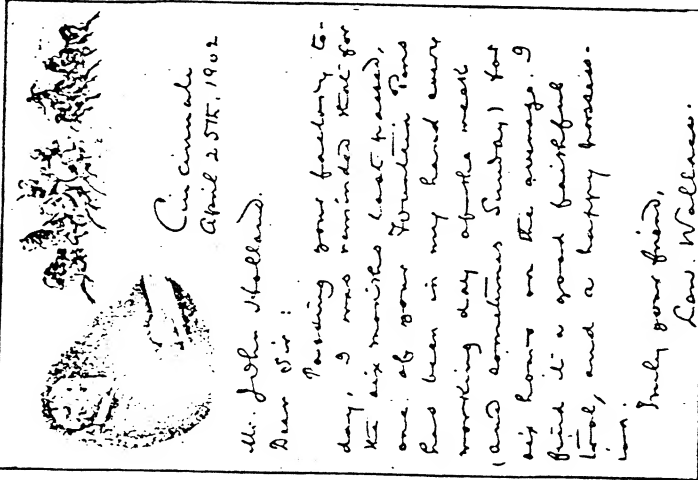 Cincinnati
April 25th, 1902
Mr. John Holland.
Dear Sir:
Passing your factory to-
day, I was reminded that for
the six months last passed,
one of your Fountain Pens
has been in my hand every
working day of the week
(and sometimes Sunday) for
six hours on the average. I
find it a good faithful
tool, and a happy possess-
ion.
Truly your friend,
Lew. Wallace.